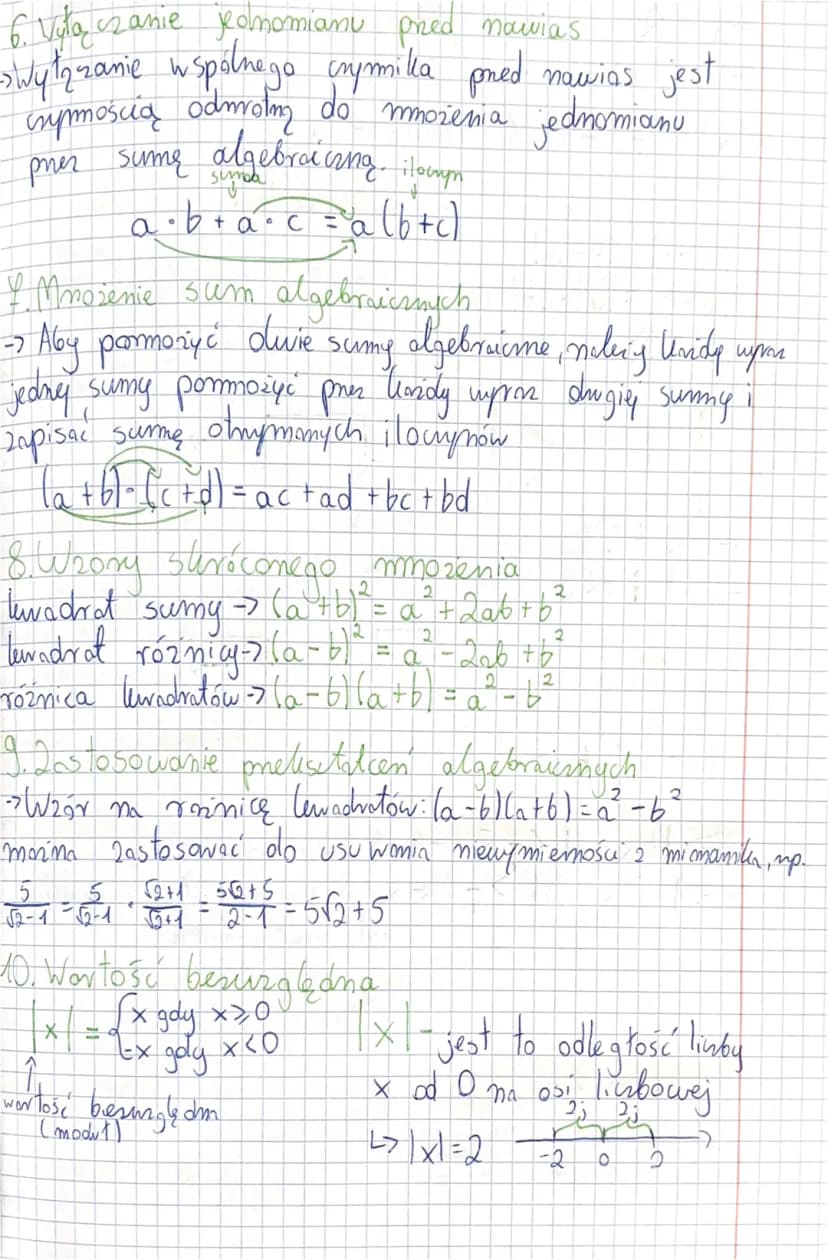 6. Wyłączanie jednomianu przed nawias
→Wyłączanie wspólnego czynnika przed nawias jest
czynnością odwrotną do mnożenia jednomianu
przez sumę algebraiczną.
suma iloczyn
a·b + a·c = a(b+c)
7. Mnożenie sum algebraicznych
→ Aby pomnożyć dwie sumy algebraiczne, należy każdy wyraz
jednej sumy pomnożyć przez każdy wyraz drugiej sumy i
zapisać sumę otrzymanych iloczynów
(a+b)·(c+d) = ac+ad+bc+bd
8. Wzory skróconego mnożenia
kwadrat sumy → (a+b)² = a²+2ab+b²
kwadrat różnicy → (a-b)² = a²-2ab+b²
różnica kwadratów → (a-b)(a+b) = a²-b²
9. Zastosowanie przekształceń algebraicznych
→Wzór na różnicę kwadratów: (a-b)(a+b) = a²-b²
można zastosować do usuwania niewymierności z mianownika, np.
5/(√2-1) = 5/(√2-1) · (√2+1)/(√2+1) = (5√2+5)/(2-1) = 5√2+5
10. Wartość bezwzględna
|x| = { x gdy x≥0
-x gdy x<0
↑
wartość bezwzględna
(moduł)
|x| - jest to odległość liczby
x od 0 na osi liczbowej
2j 2j
↳ |x|=2
-2 0 2